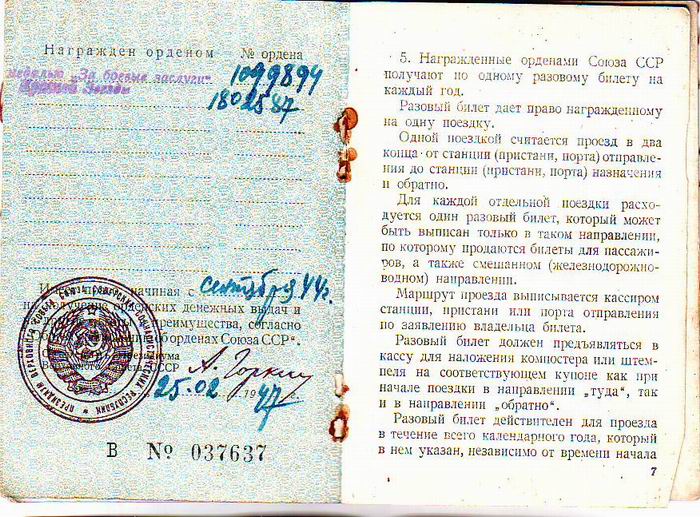 Награжден орденом № ордена
медалью „За боевые заслуги“ 1099894
Красной Звезды 1802587
начиная с сентября 44 г.
на получение орденских денежных выдач и
преимущества, согласно
орденах Союза ССР“.
А. Горкин
25.02. 1947
В № 037637
5. Награжденные орденами Союза ССР
получают по одному разовому билету на
каждый год.
Разовый билет дает право награжденному
на одну поездку.
Одной поездкой считается проезд в два
конца · от станции (пристани, порта) отправле-
ния до станции (пристани, порта) назначения
и обратно.
Для каждой отдельной поездки расхо-
дуется один разовый билет, который может
быть выписан только в таком направлении,
по которому продаются билеты для пассажи-
ров, а также смешанном (железнодорожно-
водном) направлении.
Маршрут проезда выписывается кассиром
станции, пристани или порта отправления
по заявлению владельца билета.
Разовый билет должен предъявляться в
кассу для наложения компостера или штем-
пеля на соответствующем купоне как при
начале поездки в направлении „туда“, так
и в направлении „обратно“.
Разовый билет действителен для проезда
в течение всего календарного года, который
в нем указан, независимо от времени начала
7